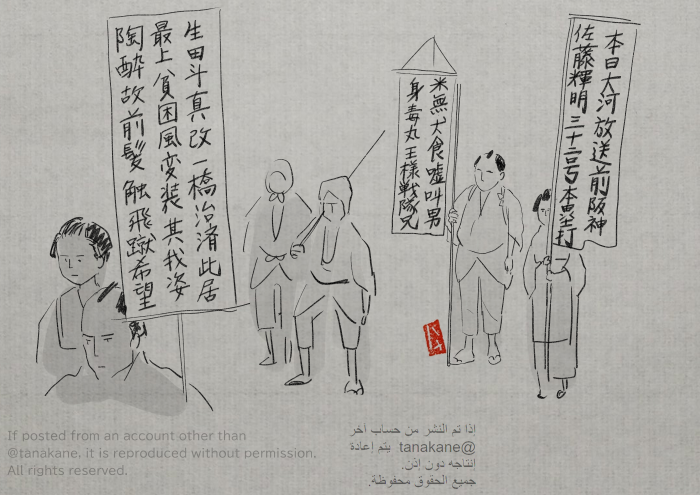 生田斗真改一橋治済此居
最上貧困風変装其我姿
陶酔故前髪触飛蹴希望
米無犬食嘘叫男
身毒丸王様戦隊兄
本日大河放送前阪神
佐藤輝明三十二号本塁打
If posted from an account other than
@tanakane, it is reproduced without permission.
All rights reserved.
إذا تم النشر من حساب آخر
@tanakane يتم إعادة
إنتاجه دون إذن.
جميع الحقوق محفوظة.